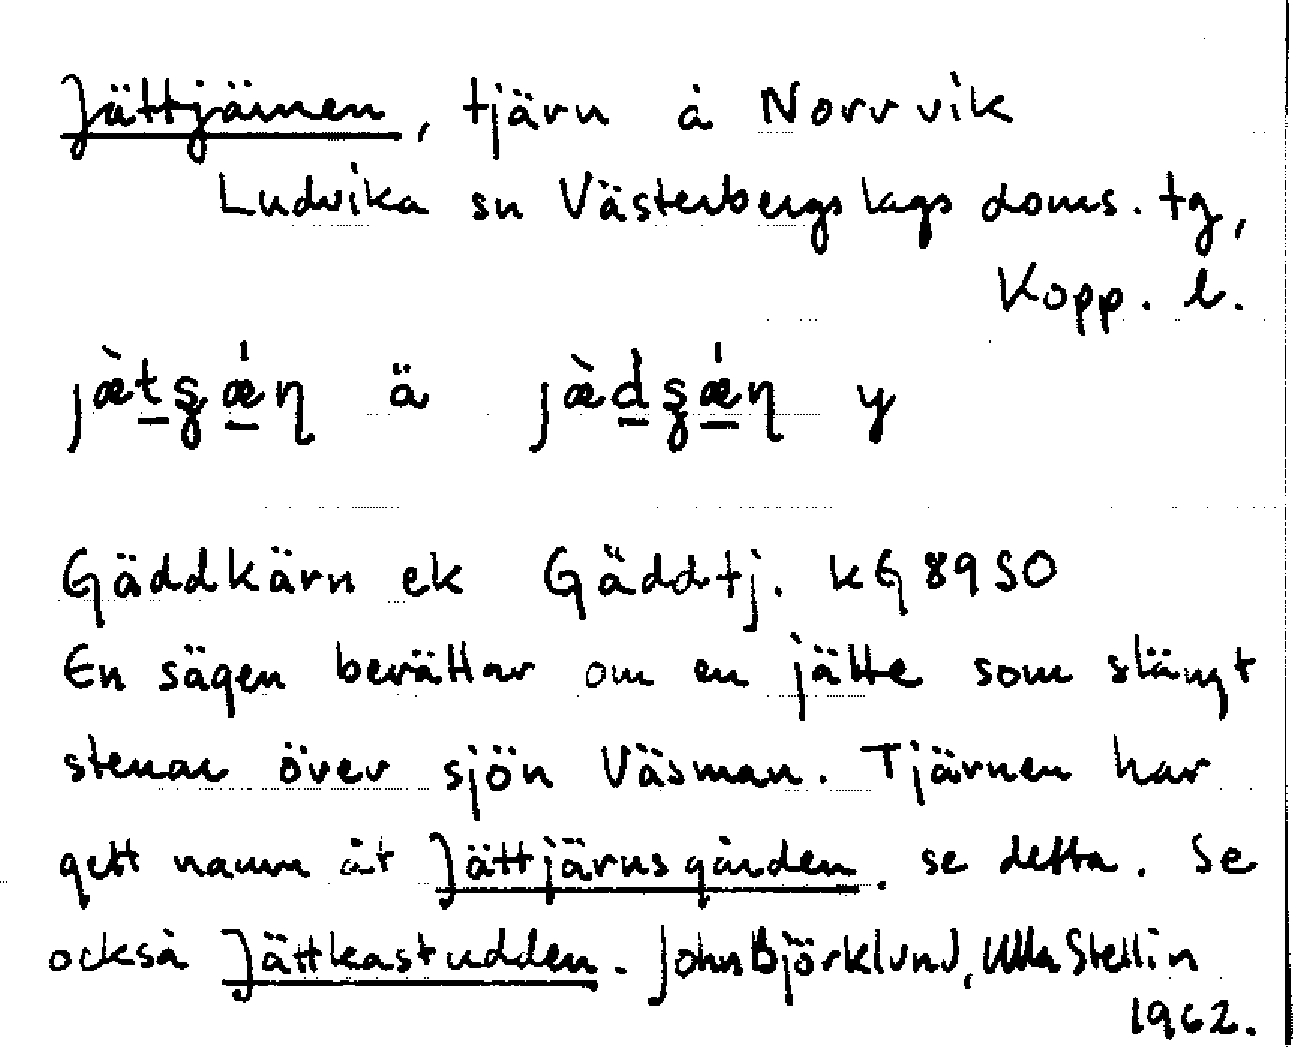 Jättjärnen, tjärn å Norrvik
Ludvika sn Västerbergslags doms. tg,
Kopp. l.
ä y
Gäddkärn ek Gäddtj. kG 8950
En sägen berättar om en jätte som slängt
stenar över sjön Väsman. Tjärnen har
gett namn åt Jättjärnsgården. se detta. Se
också Jättkastudden. John Björklund, Ulla Stellin
1962.